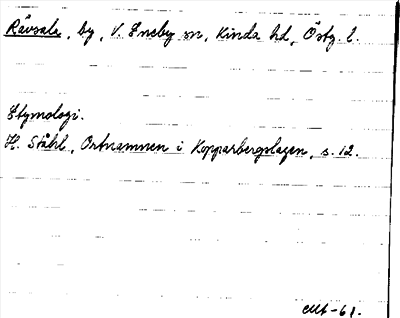 Rävsale, by, V. Eneby sn, Kinda hd, Östg. l.
Etymologi.
H. Ståhl, Ortnamnen i Kopparbergslagen, s. 12.
-61.